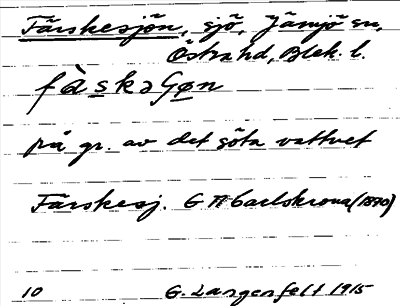 Färskesjön, sjö, Jämjö sn,
Östra hd, Blek. l.
fàskəɧøn
på gr. av det söta vattnet
Färskesj. GK Carlskrona (1870)
10 G. Langenfelt 1915